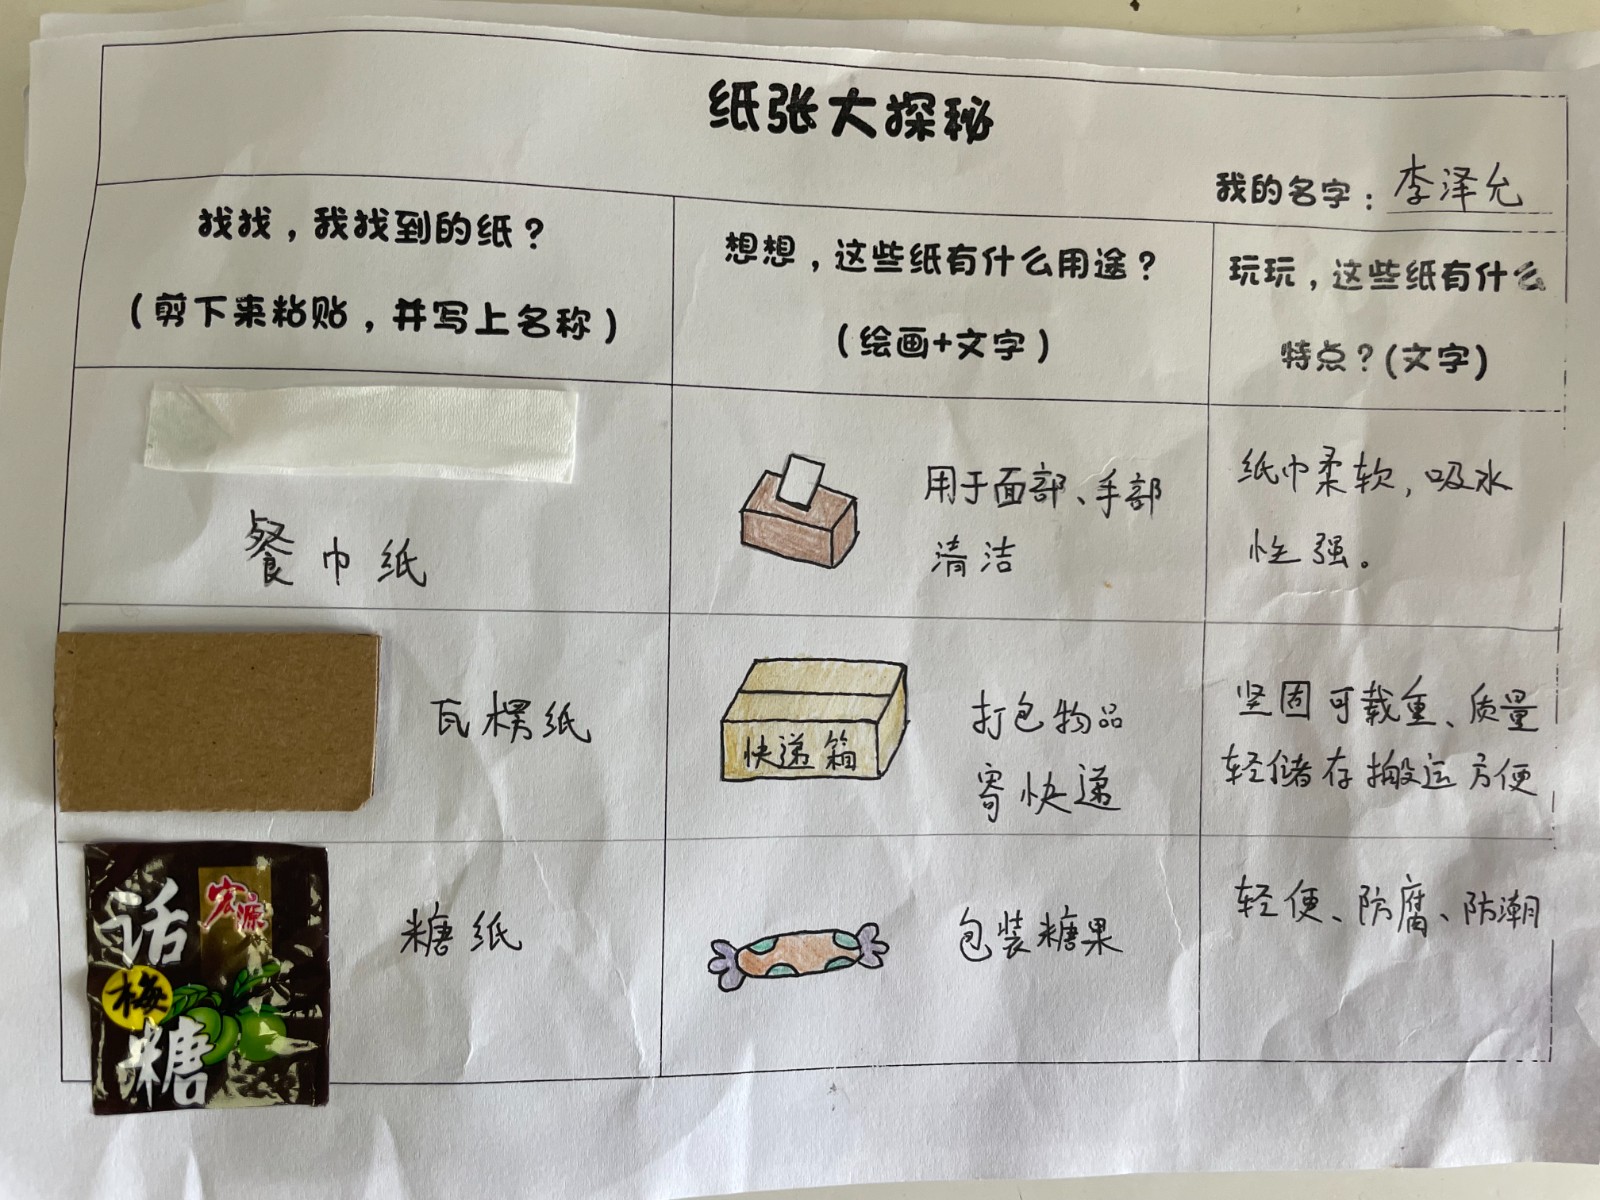 纸张大探秘
我的名字：李泽允
找找，我找到的纸？
（剪下来粘贴，并写上名称）
想想，这些纸有什么用途？
（绘画+文字）
玩玩，这些纸有什么
特点？(文字)
餐巾纸
用于面部、手部
清洁
纸巾柔软，吸水
性强。
瓦楞纸
快递箱
打包物品
寄快递
坚固可载重、质量
轻储存搬运方便
宏源
话
梅
糖
糖纸
包装糖果
轻便、防腐、防潮